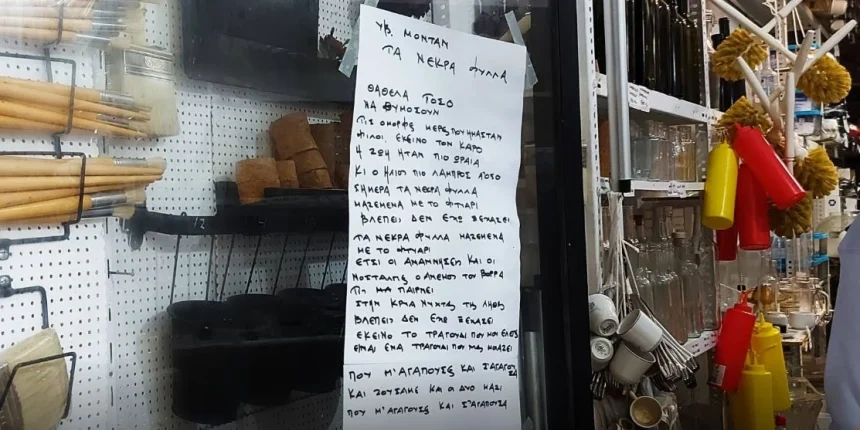 ΥΒ. ΜΟΝΤΑΝ
ΤΑ ΝΕΚΡΑ ΦΥΛΛΑ
ΘΑΘΕΛΑ ΤΟΣΟ
ΝΑ ΘΥΜΟΣΟΥΝ
ΤΙΣ ΟΜΟΡΦΕΣ ΜΕΡΕΣ ΠΟΥ ΗΜΑΣΤΑΝ
ΦΙΛΟΙ. ΕΚΕΙΝΟ ΤΟΝ ΚΑΡΟ
Η ΖΩΗ ΗΤΑΝ ΠΙΟ ΩΡΑΙΑ
ΚΙ Ο ΗΛΙΟΣ ΠΙΟ ΛΑΜΠΡΟΣ Α'ΟΣΟ
ΣΗΜΕΡΑ ΤΑ ΝΕΚΡΑ ΦΥΛΛΑ
ΜΑΖΕΜΕΝΑ ΜΕ ΤΟ ΦΤΥΑΡΙ
ΒΛΕΠΕΙΣ ΔΕΝ ΕΧΩ ΞΕΧΑΣΕΙ
ΤΑ ΝΕΚΡΑ ΦΥΛΛΑ ΜΑΖΕΜΕΝΑ
ΜΕ ΤΟ ΦΤΥΑΡΙ
ΕΤΣΙ ΟΙ ΑΝΑΜΝΗΣΕΙΣ ΚΑΙ ΟΙ
Ο ΑΝΕΜΟΣ ΤΟΥ ΒΟΡΡΑ
ΤΙΣ ΠΑΙΡΝΕΙ
ΣΤΗΝ ΚΡΥΑ ΝΥΧΤΑ ΤΗΣ ΛΗΘΗΣ
ΒΛΕΠΕΙΣ ΔΕΝ ΕΧΩ ΞΕΧΑΣΕΙ
ΕΚΕΙΝΟ ΤΟ ΤΡΑΓΟΥΔΙ ΠΟΥ ΜΟΥ ΕΛΕΓΕΣ
ΕΙΝΑΙ ΕΝΑ ΤΡΑΓΟΥΔΙ ΠΟΥ ΜΑΣ ΜΟΙΑΖΕΙ
ΠΟΥ Μ'ΑΓΑΠΟΥΣΕΣ ΚΑΙ Σ'ΑΓΑΠΟΥΣΑ
ΚΑΙ ΖΟΥΣΑΜΕ ΚΑΙ ΟΙ ΔΥΟ ΜΑΖΙ
ΠΟΥ Μ'ΑΓΑΠΟΥΣΕΣ ΚΑΙ Σ'ΑΓΑΠΟΥΣΑ